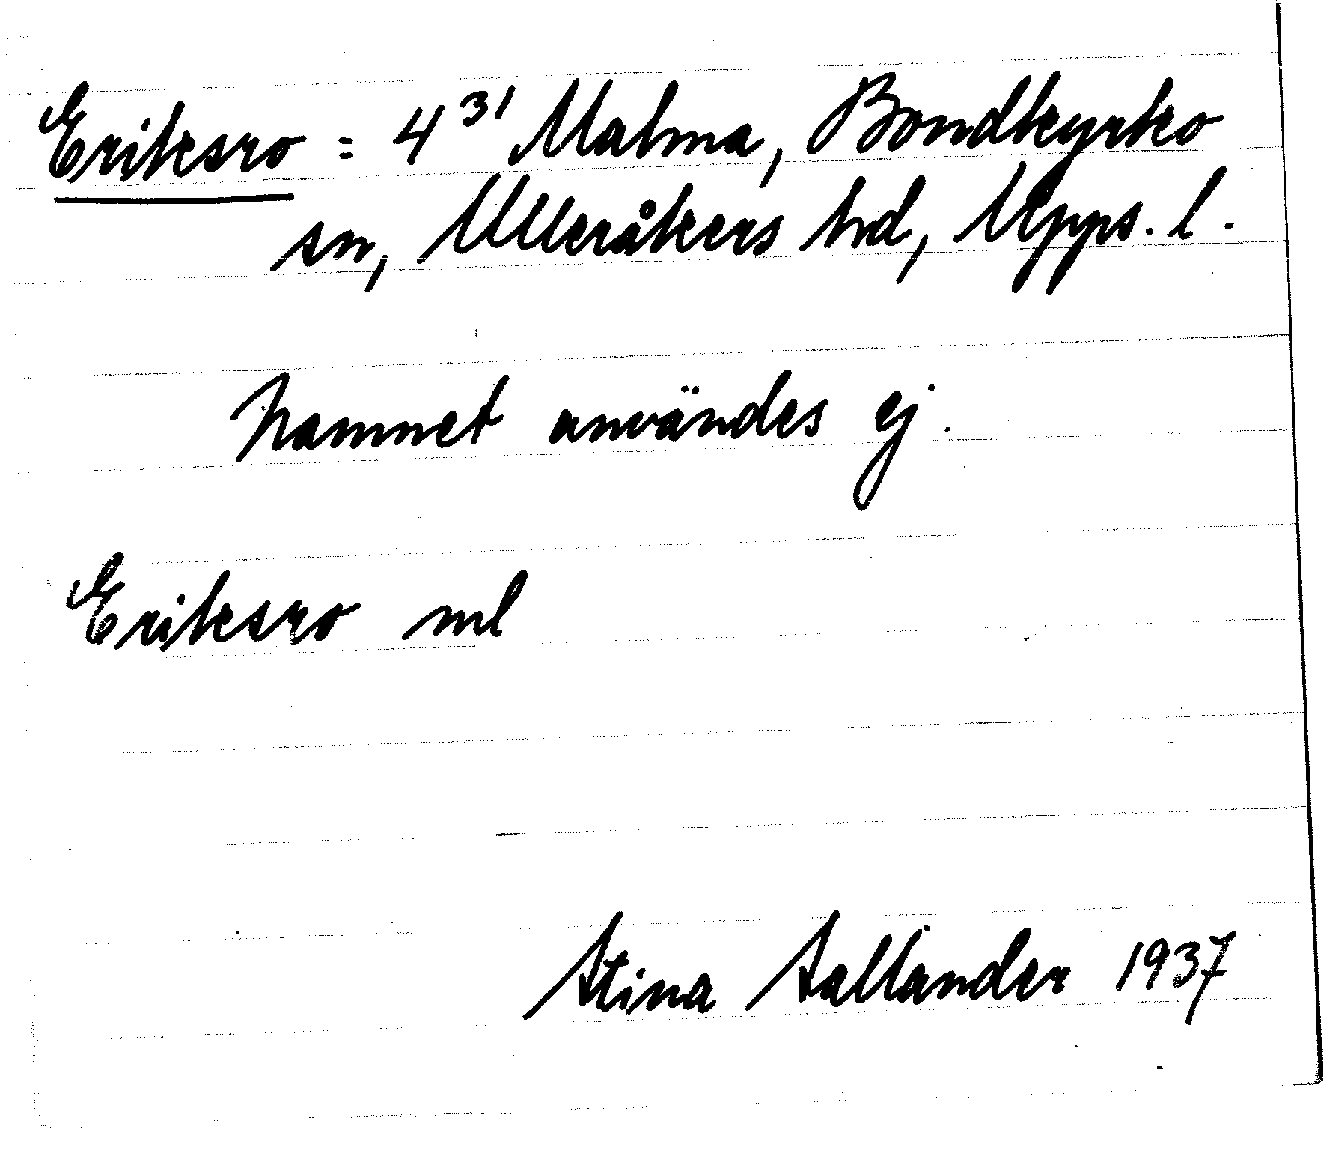 Eriksro = 4³¹ Malma, Bondkyrko
sn, Ulleråkers hd, Upps. l.
Namnet användes ej.
Eriksro ml
Stina Sallander 1937